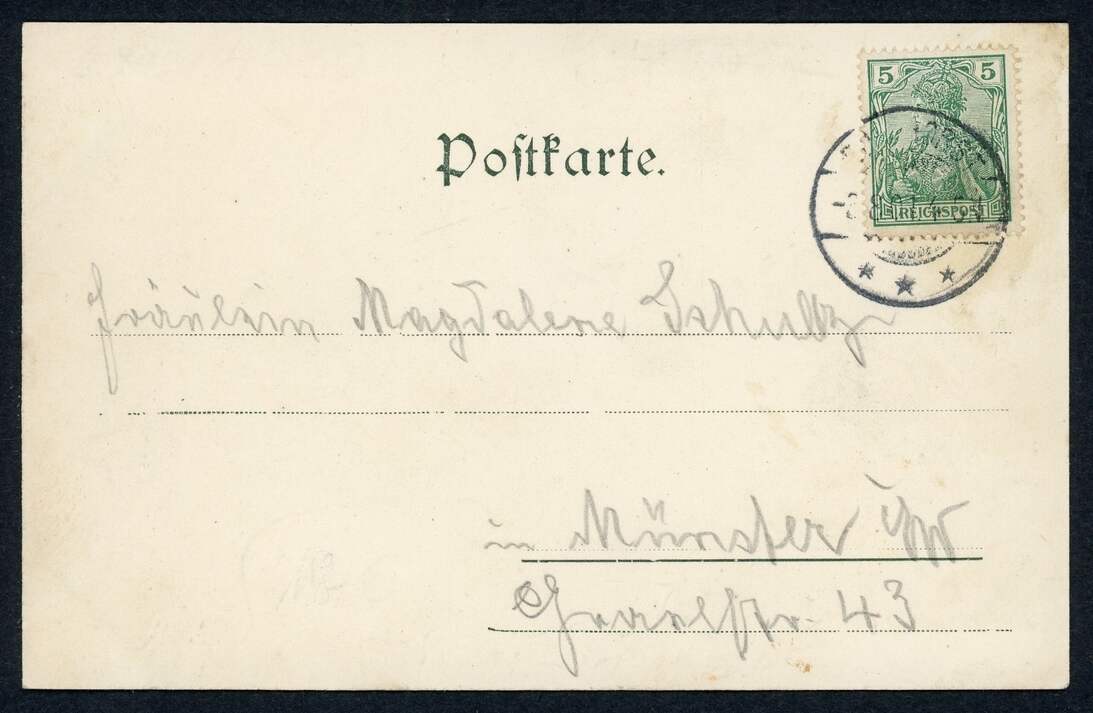 Postkarte.
5 5
REICHSPOST
Fräulein Magdalene Schultz
in Münster i/W
str. 43